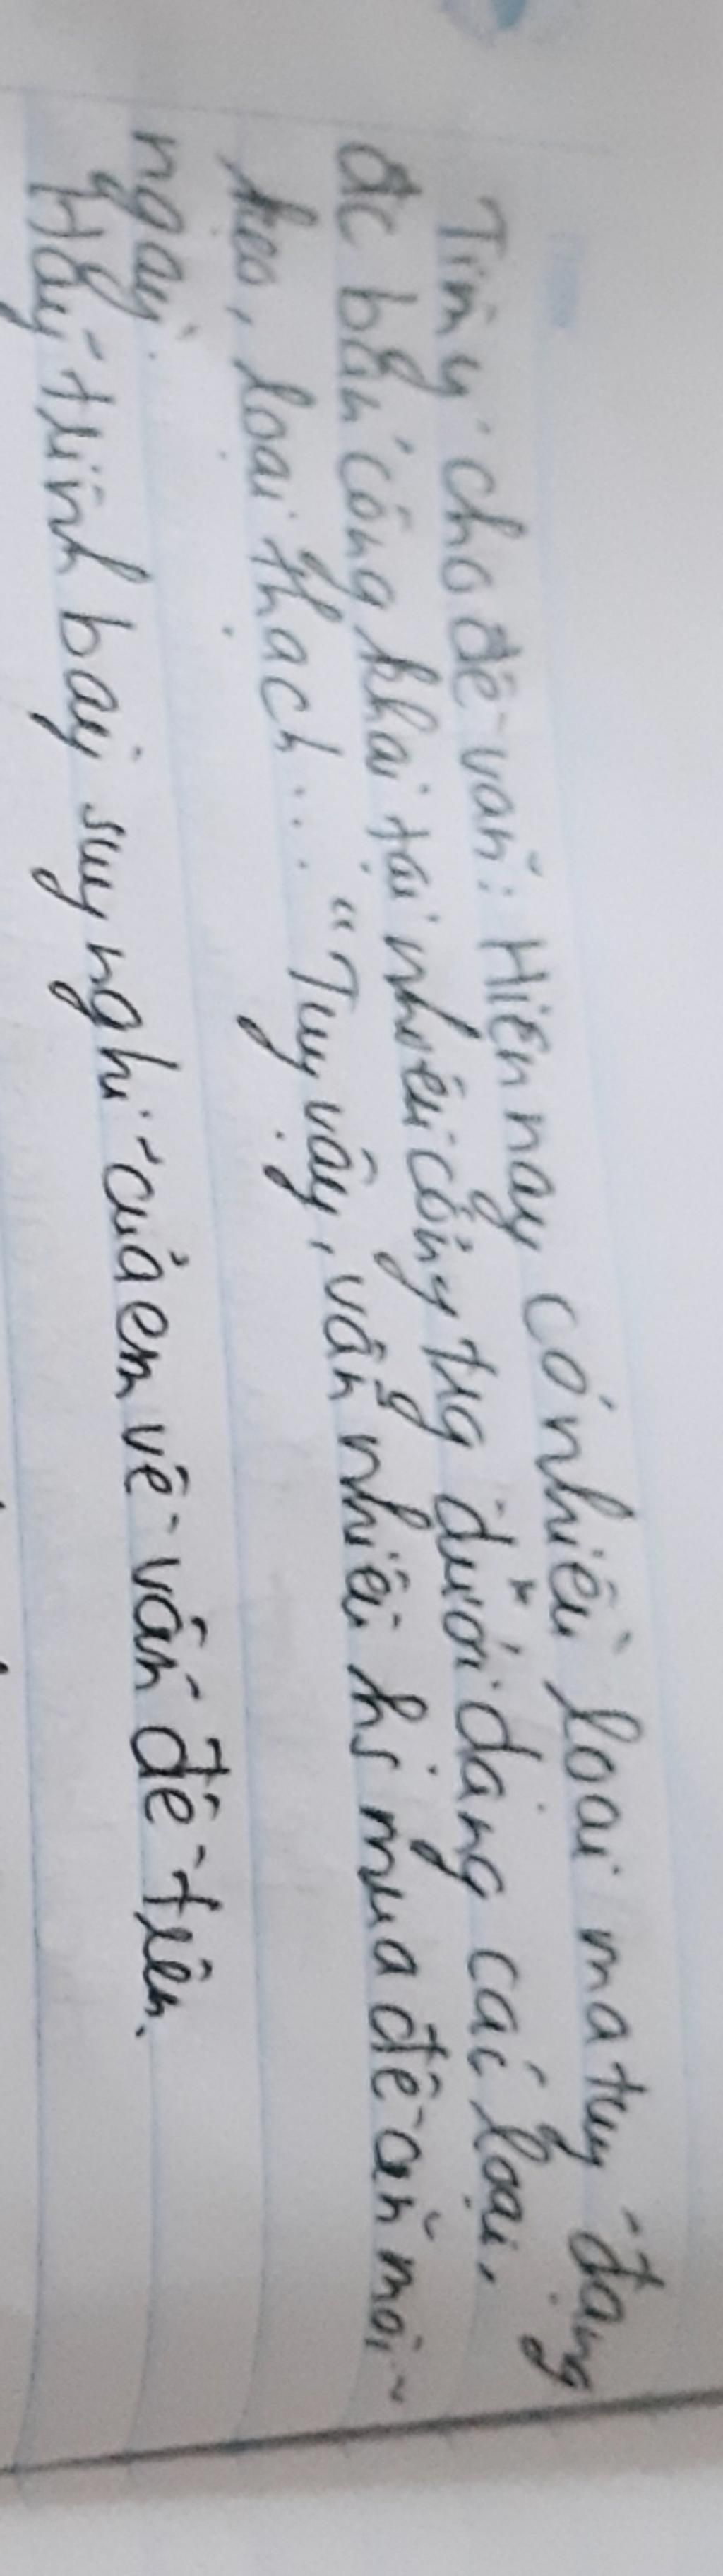 Tìm ý cho đề văn: Hiện nay có nhiều loại ma tuý đang
đc bán công khai tại nhiều cổng trg dưới dạng các loại
kẹo, loại thạch... "Tuy vậy, vẫn nhiều hs mua để ăn mỗi
ngày.
Hãy trình bày suy nghĩ của em về vấn đề trên.